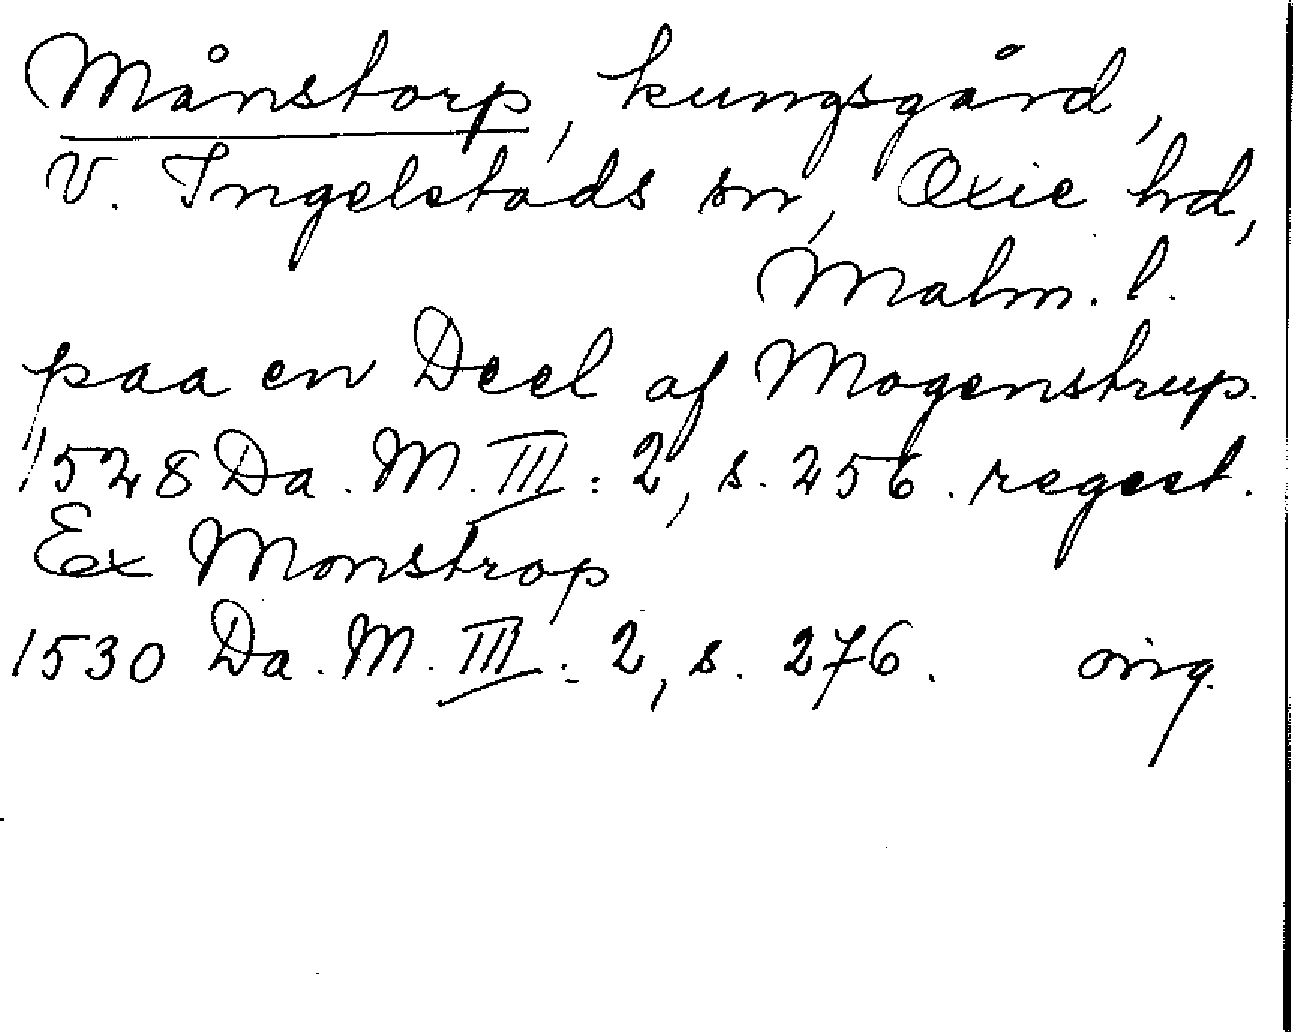 Månstorp, kungsgård,
V. Ingelstads sn, Oxie hd,
Malm. l.
paa en Deel af Mogenstrup.
1528 Da. M. III: 2, s. 256. regest.
Ex Monstrop
1530 Da. M. III: 2, s. 276. orig.